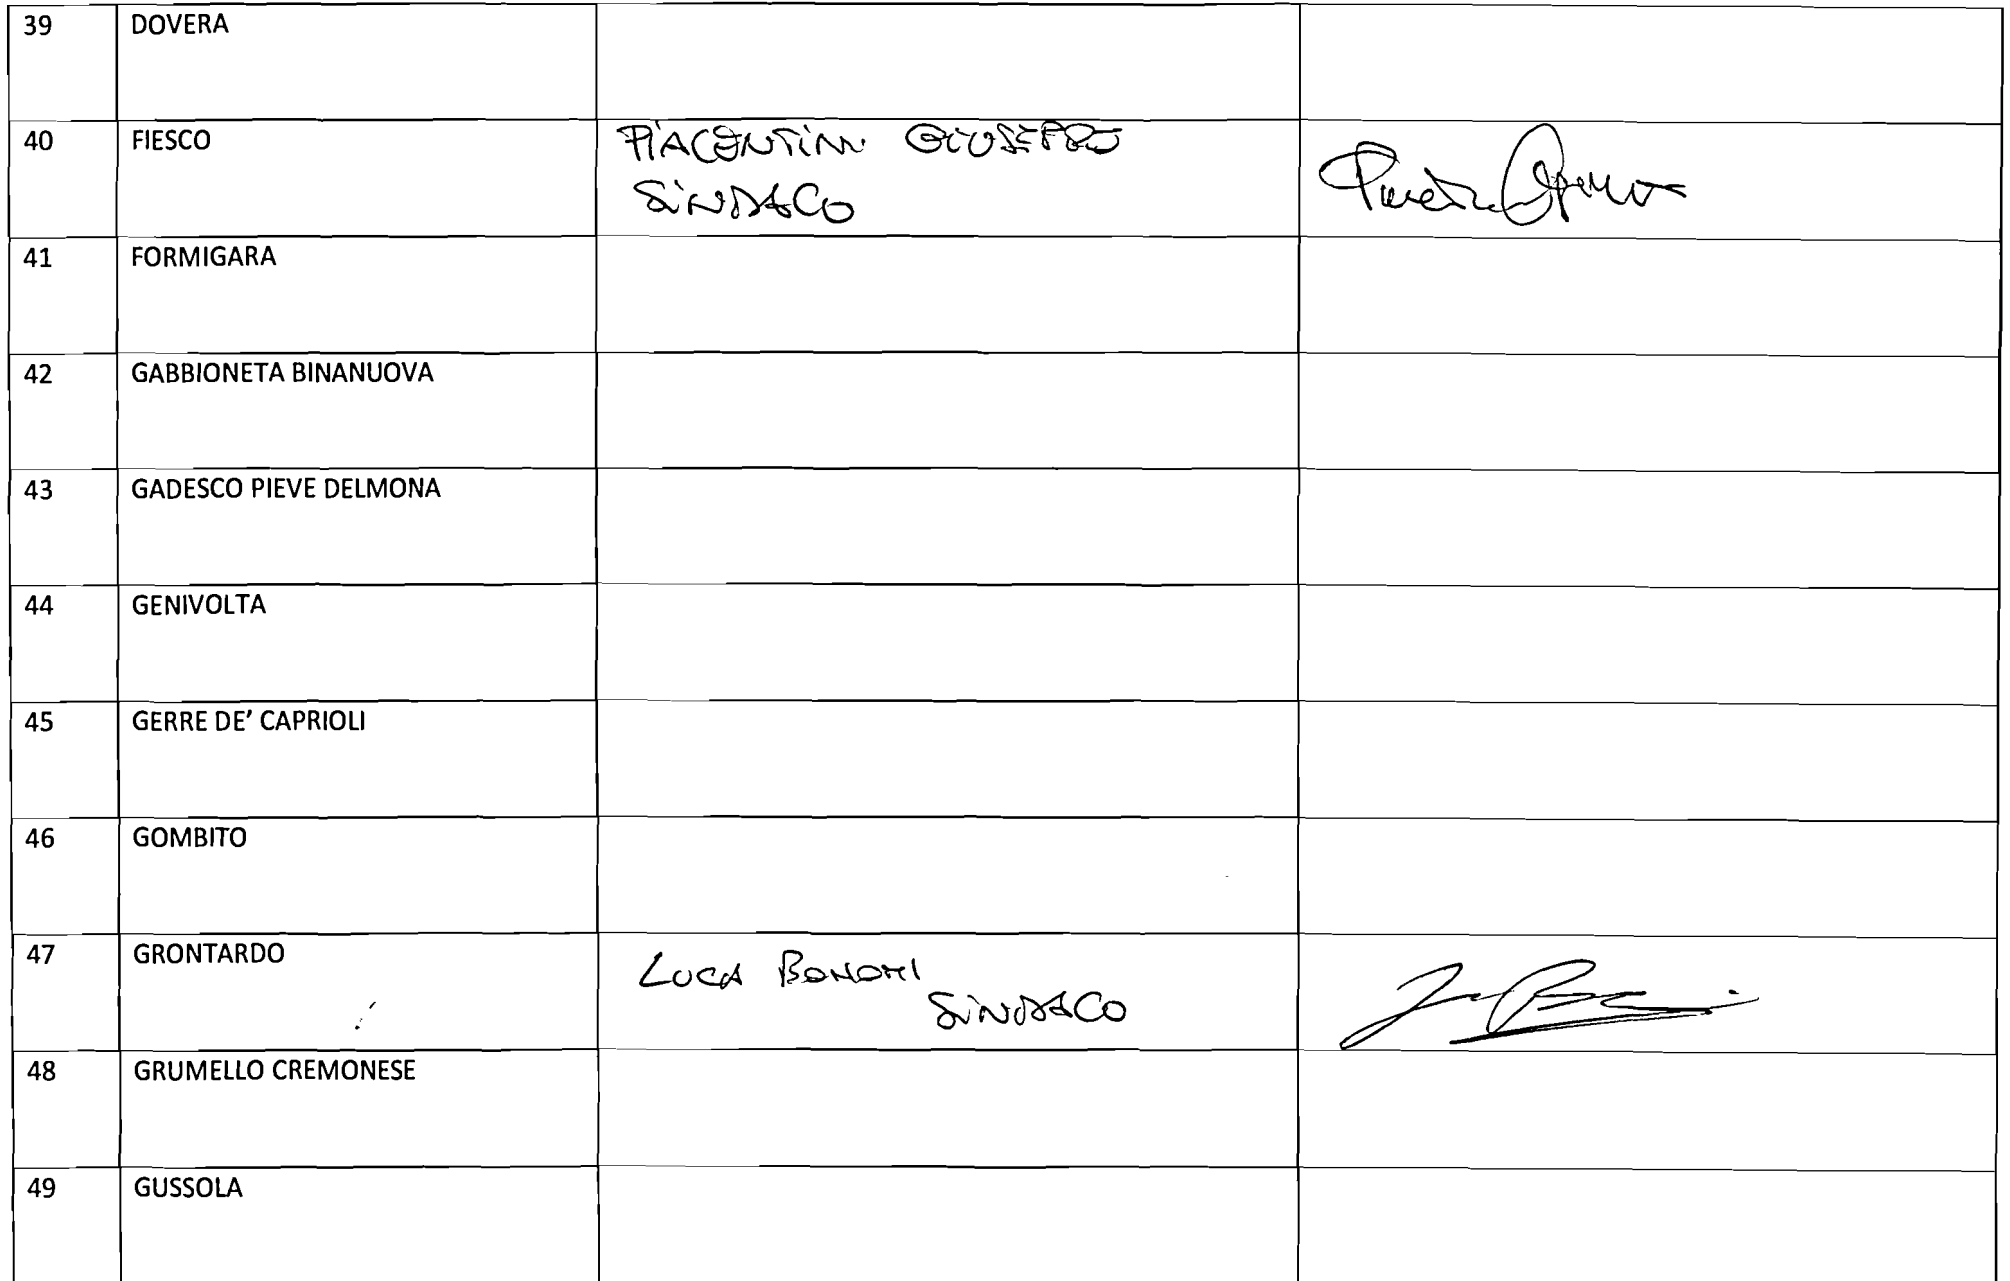 39 DOVERA
40 FIESCO PIACENTINI GIUSEPPE
SINDACO
41 FORMIGARA
42 GABBIONETA BINANUOVA
43 GADESCO PIEVE DELMONA
44 GENIVOLTA
45 GERRE DE’ CAPRIOLI
46 GOMBITO
47 GRONTARDO LUCA BONOMI
SINDACO
48 GRUMELLO CREMONESE
49 GUSSOLA